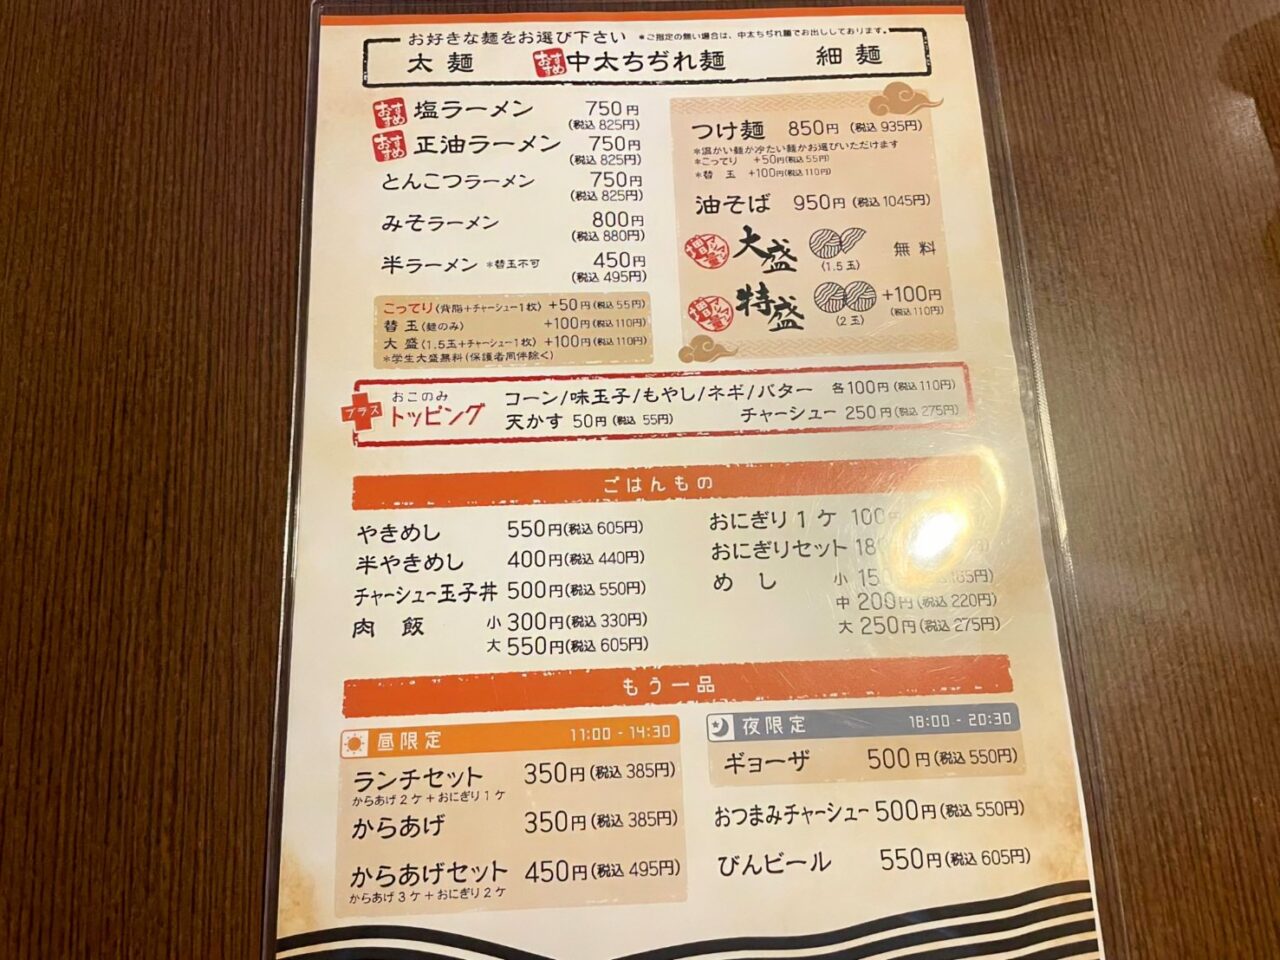 お好きな麺をお選び下さい *ご指定の無い場合は、中太ちぢれ麺でお出ししております。
太麺 おすすめ 中太ちぢれ麺 細麺
おすすめ 塩ラーメン 750円
(税込 825円)
おすすめ 正油ラーメン 750円
(税込 825円)
とんこつラーメン 750円
(税込 825円)
みそラーメン 800円
(税込 880円)
半ラーメン *替玉不可 450円
(税込 495円)
こってり(背脂+チャーシュー1枚) +50円(税込 55円)
替玉(麺のみ) +100円(税込110円)
大盛(1.5玉+チャーシュー1枚) +100円(税込110円)
*学生大盛無料(保護者同伴除く)
つけ麺 850円 (税込 935円)
*温かい麺か冷たい麺かお選びいただけます
*こってり +50円(税込55円)
*替玉 +100円(税込110円)
油そば 950円 (税込 1045円)
大盛 (1.5玉) 無料
特盛 (2玉) +100円
(税込110円)
プラス おこのみ
トッピング
コーン/味玉子/もやし/ネギ/バター 各100円(税込110円)
天かす 50円(税込 55円) チャーシュー 250円(税込275円)
ごはんもの
やきめし 550円(税込 605円)
半やきめし 400円(税込 440円)
チャーシュー玉子丼 500円(税込 550円)
肉飯 小 300円(税込 330円)
大 550円(税込 605円)
おにぎり1ケ 100円
おにぎりセット
めし 小
中 200円(税込 220円)
大 250円(税込 275円)
もう一品
昼限定 11:00 - 14:30
ランチセット 350円(税込 385円)
からあげ2ケ+おにぎり1ケ
からあげ 350円(税込 385円)
からあげセット 450円(税込 495円)
からあげ3ケ+おにぎり2ケ
夜限定 18:00 - 20:30
ギョーザ 500円(税込 550円)
おつまみチャーシュー 500円(税込 550円)
びんビール 550円(税込 605円)